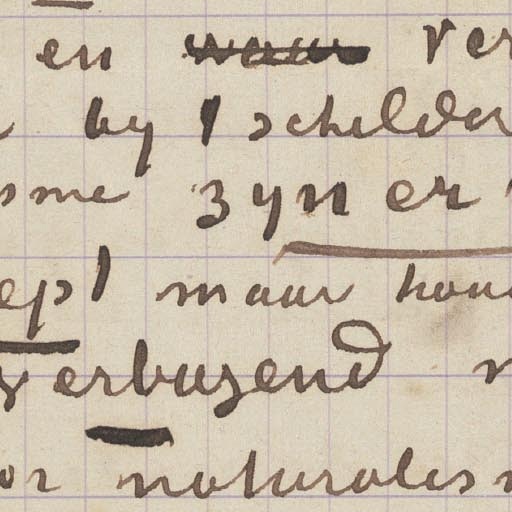 en ~~waar~~ ver
by 't schilder
sme zyn er
ept maar hou
verbazend
or naturalis